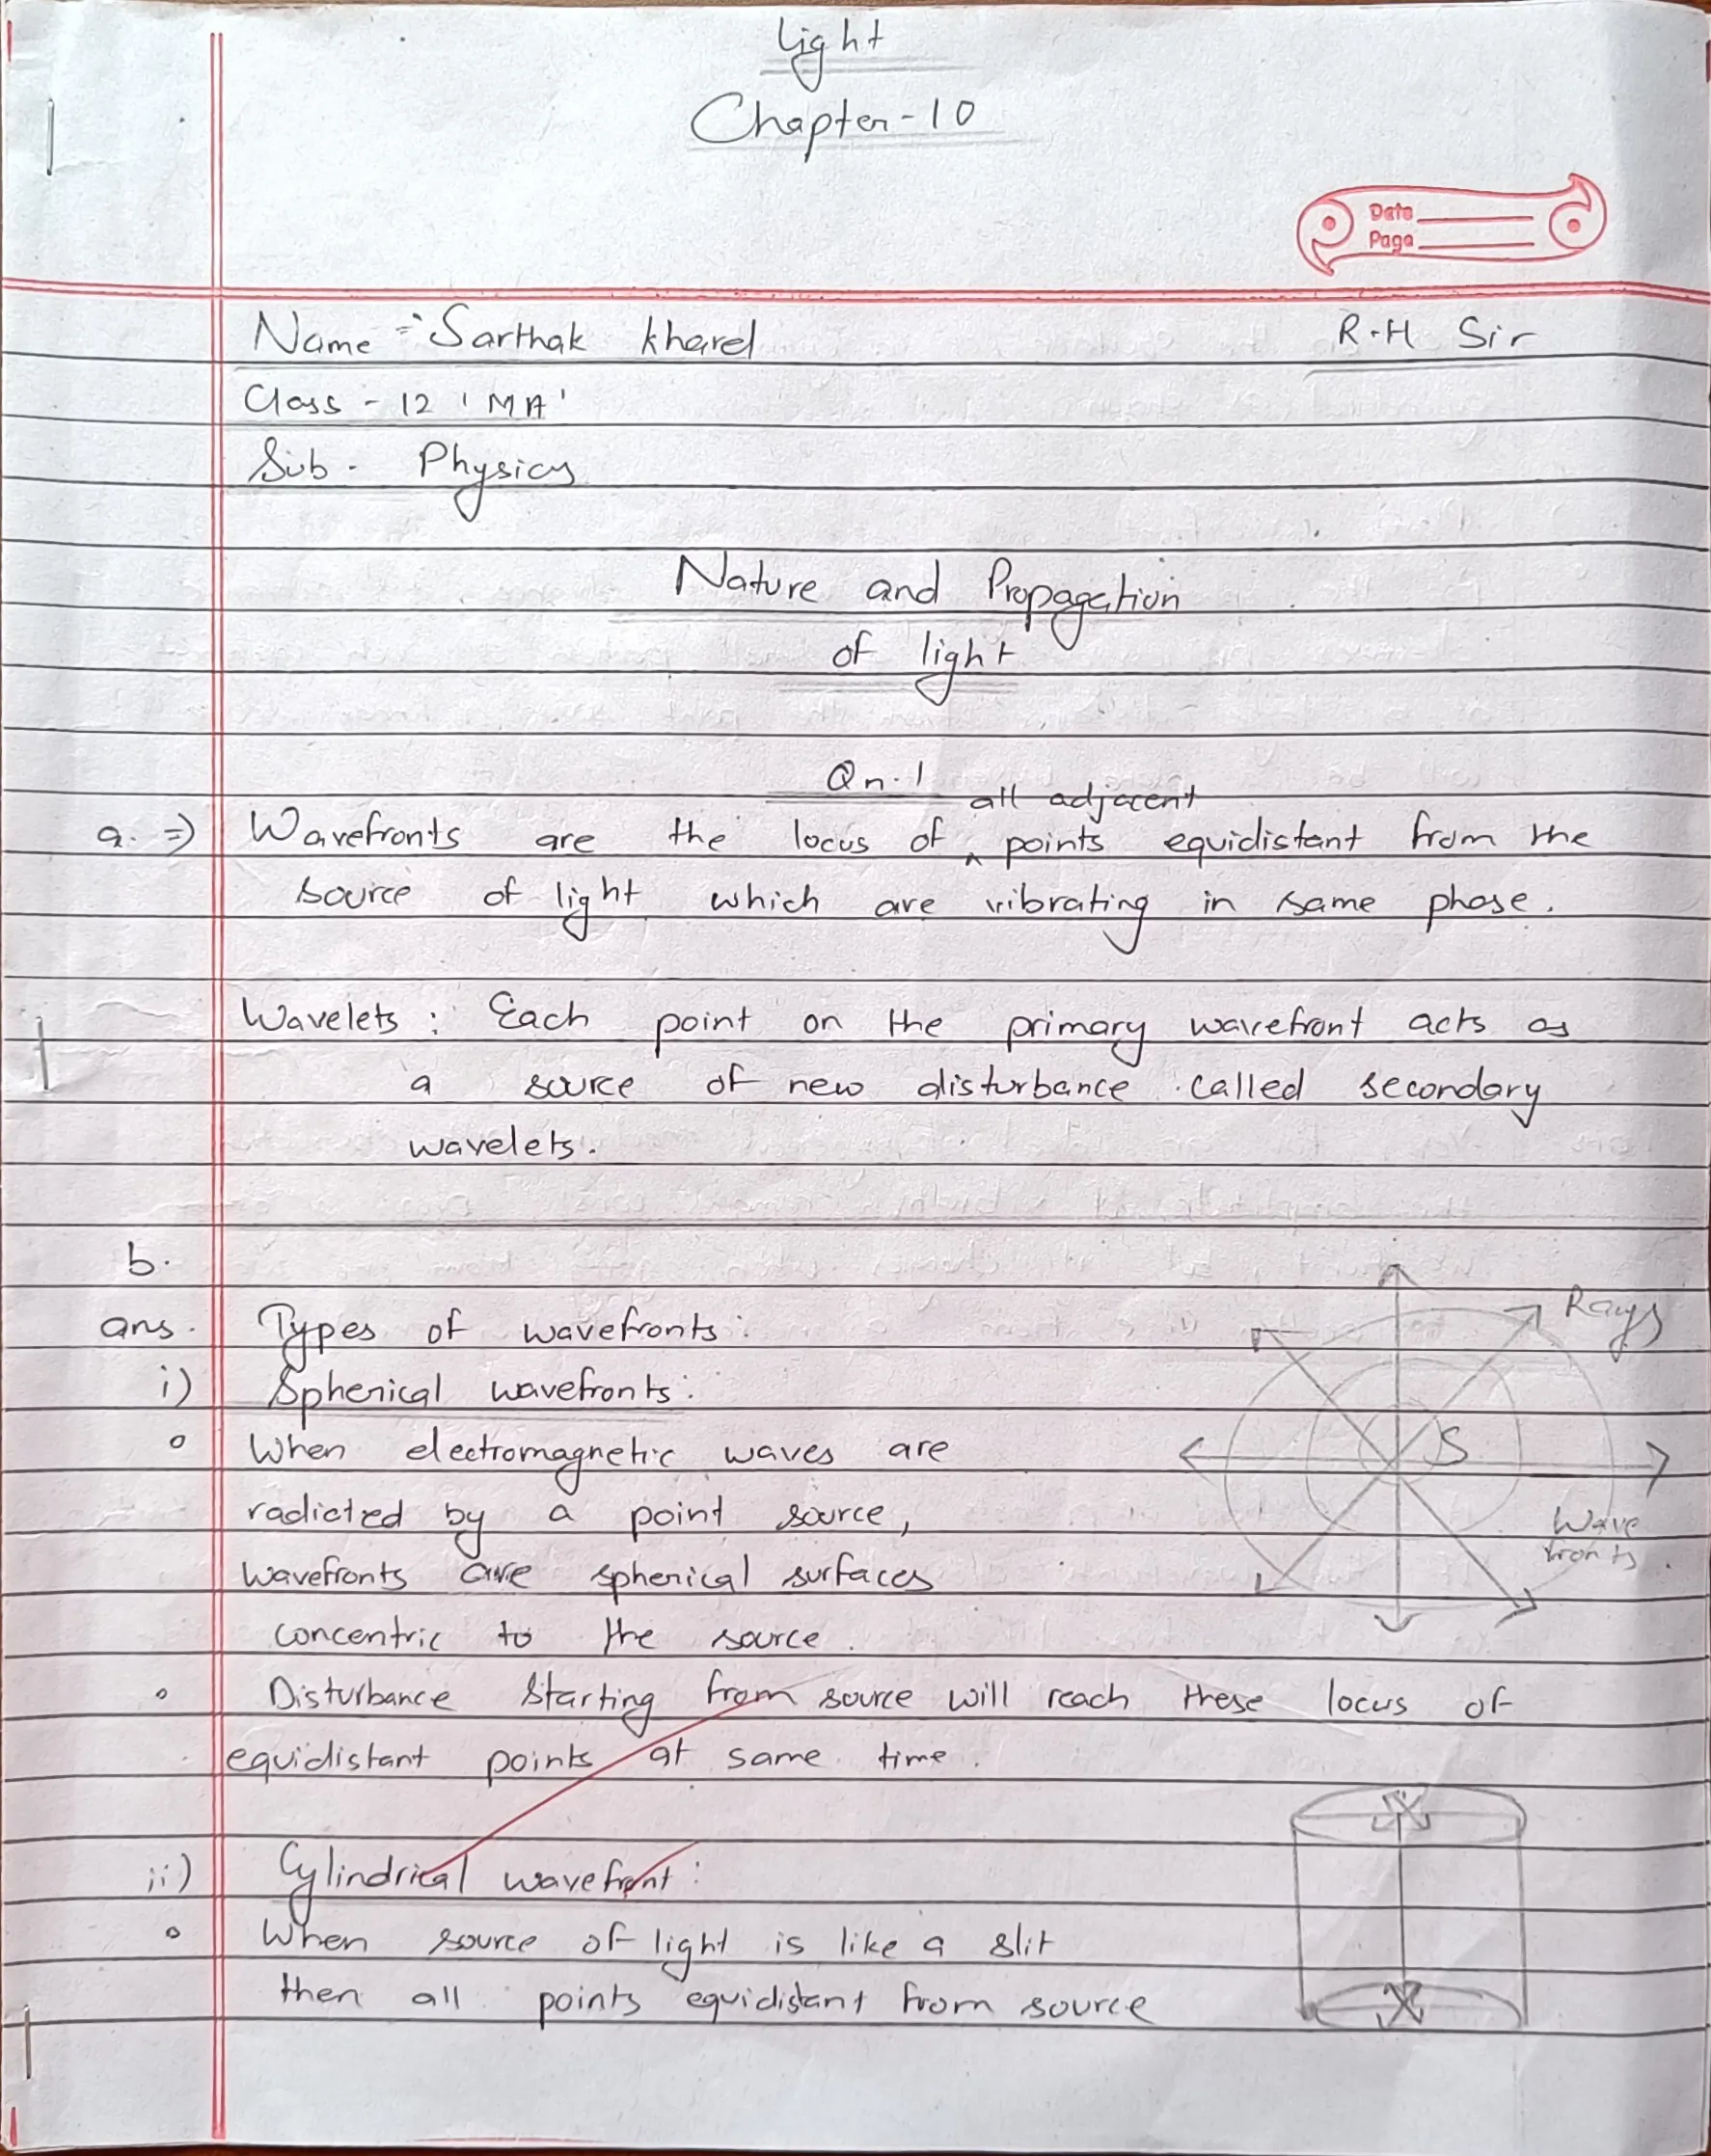 Light
Chapter-10
Date
Page
Name - Sarthak kharel
R.H Sir
Class - 12 'MA'
Sub - Physics
Nature and Propagation
of light
Qn.1
all adjacent
a. => Wavefronts are the locus of ^ points equidistant from the
source of light which are vibrating in same phase.
Wavelets : Each point on the primary wavefront acts as
a source of new disturbance called secondary
wavelets.
b.
ans. Types of wavefronts:
Rays
i) Spherical wavefronts:
° When electromagnetic waves are
S
radiated by a point source,
Wave
fronts
wavefronts are spherical surfaces
concentric to the source.
° Disturbance starting from source will reach these locus of
equidistant points at same time.
ii) Cylindrical wavefront:
° When source of light is like a slit
then all points equidistant from source